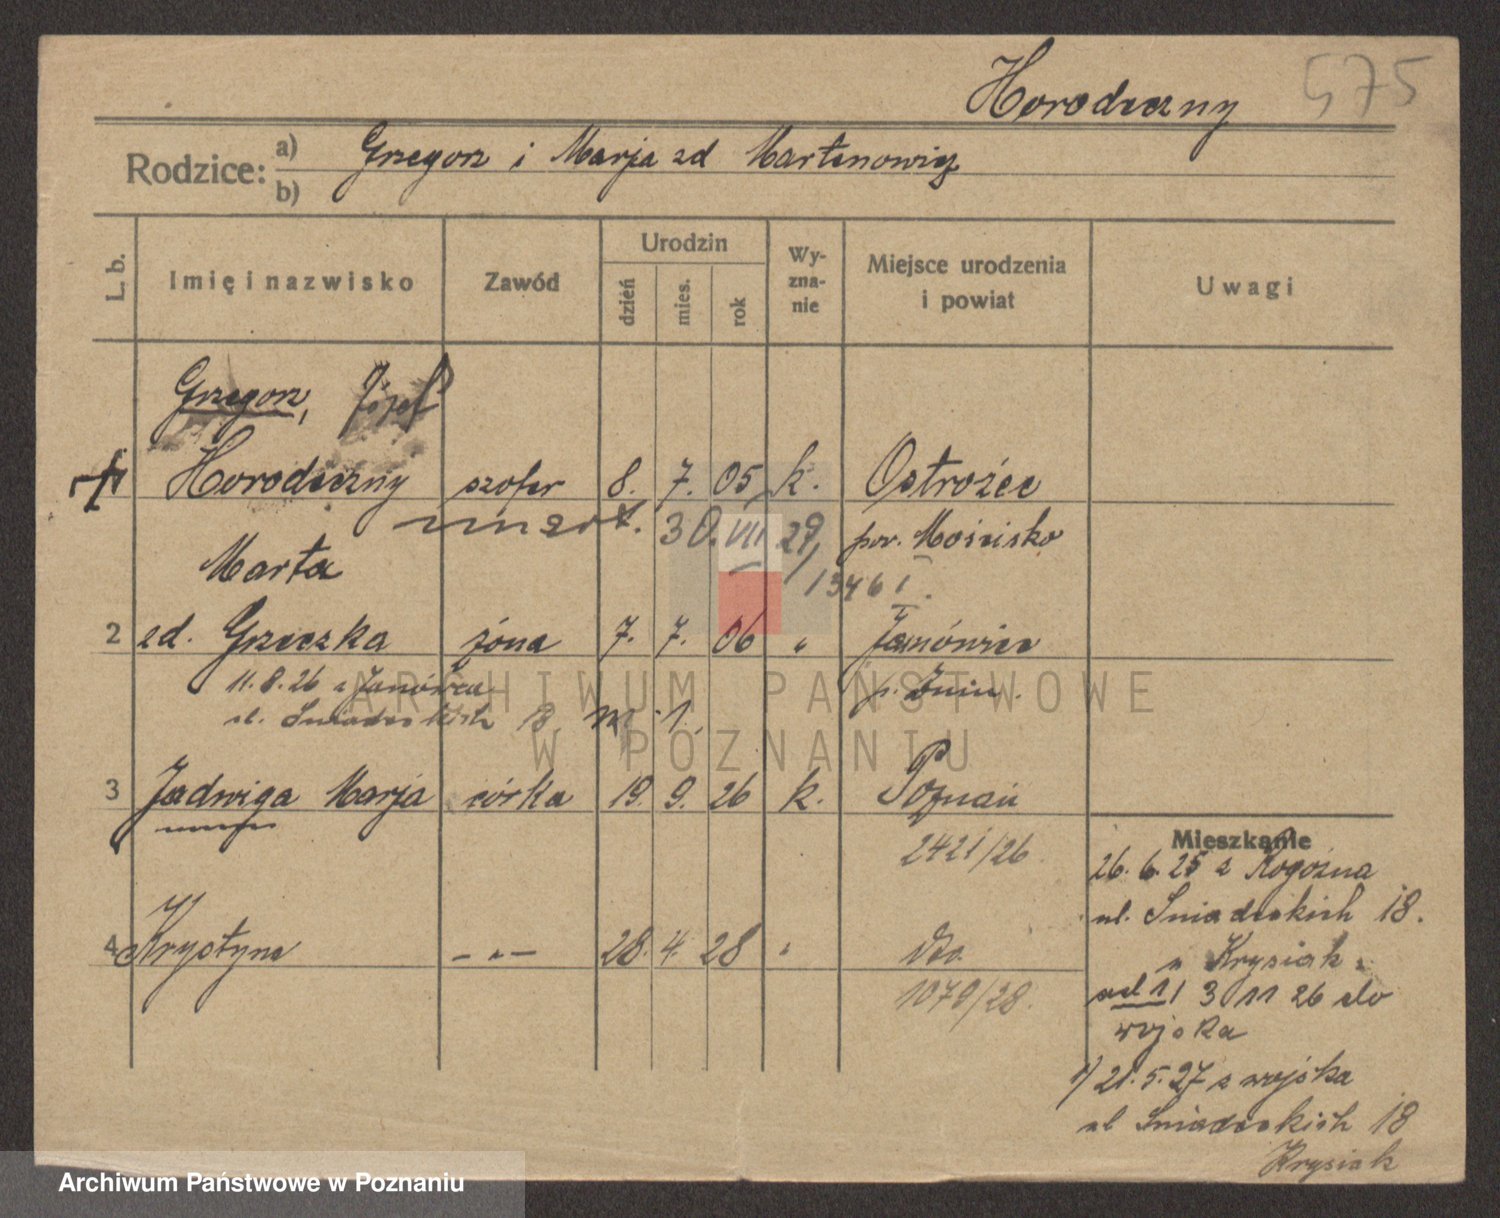 Horodeczny 575
Rodzice: a) Grzegorz i Marja zd Martenowicz
b)
L. b. Imię i nazwisko Zawód Urodzin dzień mies. rok Wyznanie Miejsce urodzenia i powiat Uwagi
Grzegorz, Józef
Horodeczny szofer 8. 7. 05 k. Ostrożec
umarł. 30. VII. 29, pow. Mościsko
1346 I
Marta
2 zd. Grzeczka żona 7. 7. 06 " Janówiec
11.8.26 z Janówca p. Żnin.
ul. Śniadeckich 18 m 1
3 Jadwiga Marja córka 19. 9. 26 k. Poznań
2421/26
4 Krystyna — " — 28. 4. 28 " dto.
1079/28.
Mieszkanie
26. 6. 25 z Rogoźna
ul. Śniadeckich 18.
u Krysiak
ad 1/ 3 11 26 do
wojska
1/ 21. 5. 27 z wojska
ul Śniadeckich 18
Krysiak
ARCHIWUM PAŃSTWOWE
W POZNANIU
Archiwum Państwowe w Poznaniu